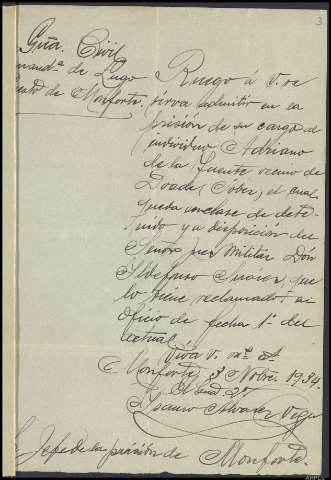 3
Gua. Civil
Comand.ª de Lugo
Puesto de Monforte.
Ruego á V. se
sirva admitir en la
prisión de su cargo, al
individuo Adriano
de la Fuente vecino de
Doade (Sober), el cual
queda en clase de dete-
nido y a disposición del
Señor juez militar Don
Ildefonso que
lo tiene reclamado
oficio de fecha 1º del
actual.
Viva V. m.s a.s
Monforte 3 Nobre. 1934.
El
Isauro Alvarez Vega
Jefe de la prisión de Monforte.